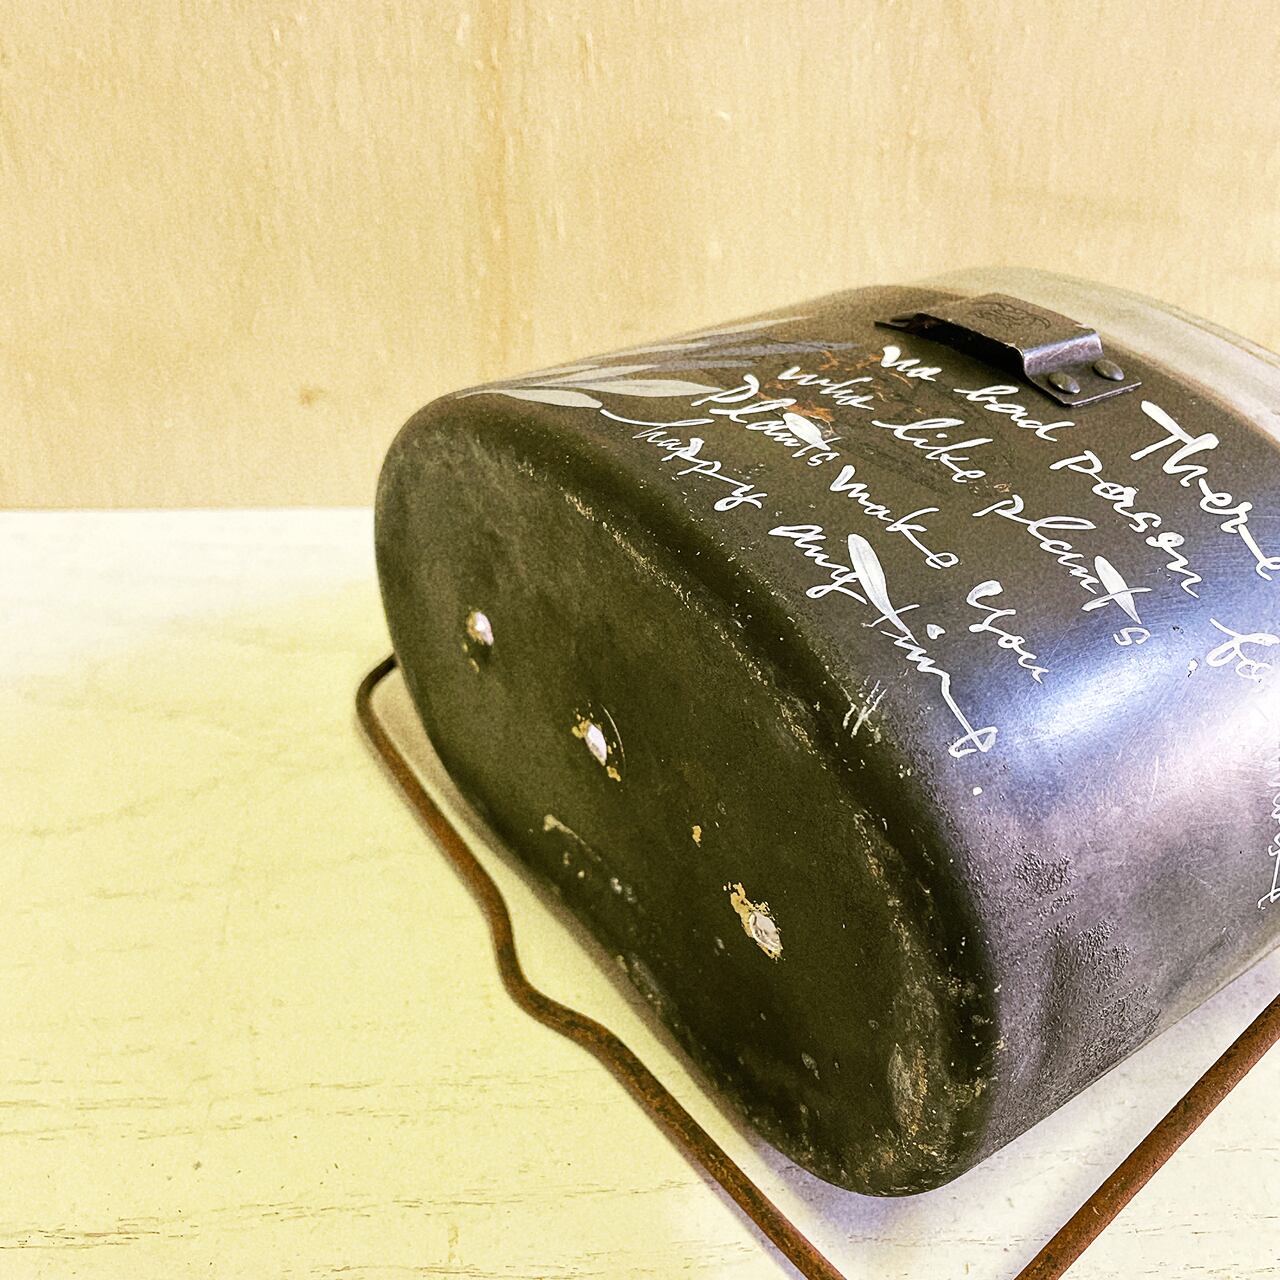 There
no bad person
who like plants
Plants make you
happy anytim